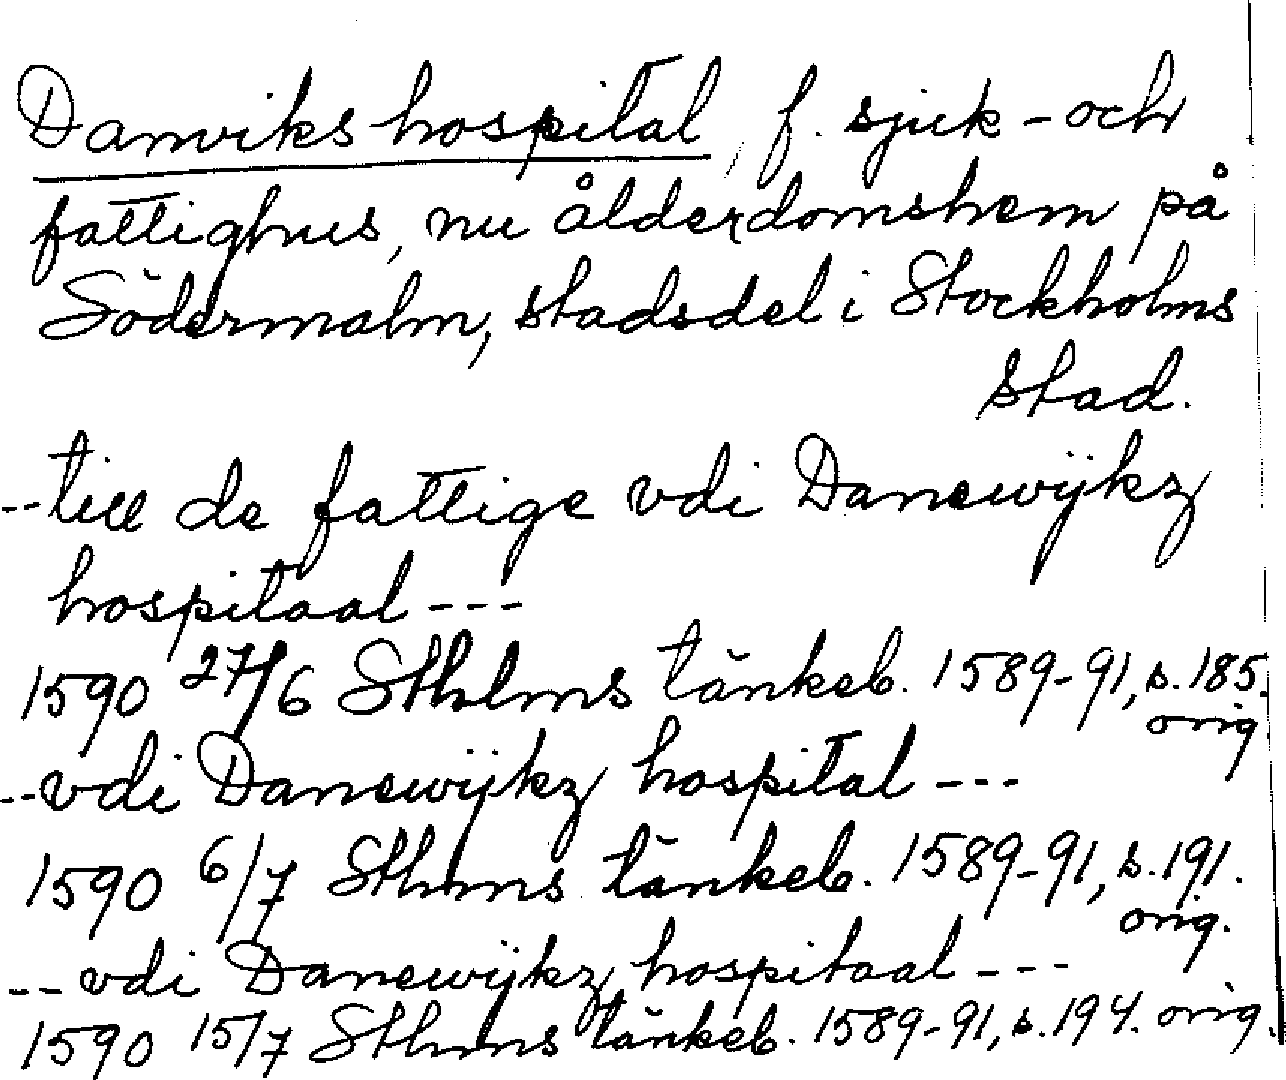 Danviks hospital, f. sjuk- och
fattighus, nu ålderdomshem på
Södermalm, stadsdel i Stockholms
stad.
--till de fattige vdi Danewijkz
hospitaal ---
1590 27/6 Sthlms tänkeb. 1589-91, s. 185.
orig
--vdi Danewijkz hospital ---
1590 6/7 Sthlms tänkeb. 1589-91, s. 191.
orig.
-- vdi Danewijkz hospitaal ---
1590 15/7 Sthlms tänkeb. 1589-91, s. 194. orig.